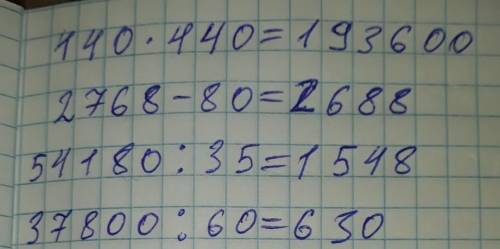 440·440=193600
2768-80=2688
54180:35=1548
37800:60=630